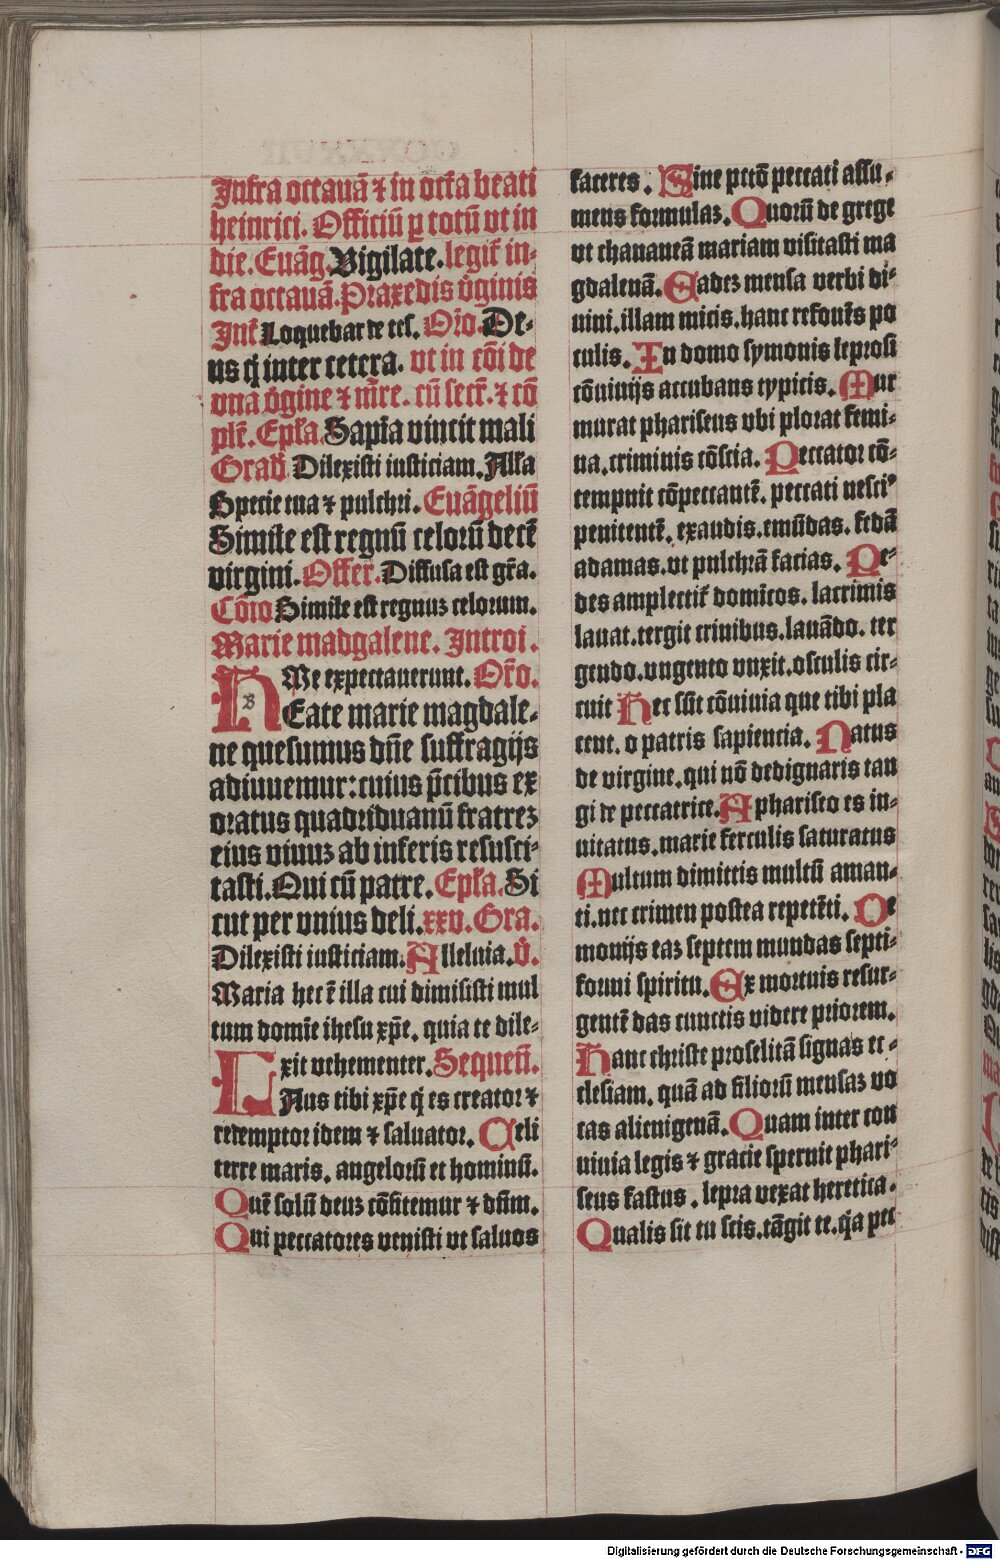 Infra octauā ⁊ in octa beati
heinrici. Officiū p̱ totū vt in
die. Euāg. Vigilate. legit᷑ in-
fra octauā. Praxedis v̄ginis
Int᷑ Loquebar de tes. Or̄o. De-
us q̄ inter cetera. vt in cōi de
vna v̄gine ⁊ m̄re. cū secr̄. ⁊ cō
pl̄r. Ep̄la. Sapīa vincit mali
Grad᷑ Dilexisti iusticiam. Alla
Specie tua ⁊ pulchri. Euāgeliū
Simile est regnū celorū decē
virgini. Offer̄. Diffusa est gr̄a.
Cōīo Simile est regnuz celorum.
Marie madgalene. Introi.
ME expectauerunt. Or̄o.
BEate marie magdale-
ne quesumus dn̄e suffragijs
adiuuemur: cuius p̄cibus ex
oratus quadriduanū fratrez
eius viuuz ab inferis resusci-
tasti. Qui cū patre. Ep̄la. Si
cut per vnius deli. xxv. Gra.
Dilexisti iusticiam. Alleluia. v̄.
Maria hec ē illa cui dimisisti mul
tum domīe ihesu xp̄e. quia te dile-
xit vehementer. Sequen̄.
LAus tibi xp̄e q̄ es creator ⁊
redemptor idem ⁊ saluator. Celi
terre maris. angelorū et hominū.
Quē solū deuz cōfitemur ⁊ dn̄m.
Qui peccatores venisti vt saluos
faceres. Sine pctō peccati assu-
mens formulaz. Quorū de grege
vt chananeā mariam visitasti ma
gdalenā. Eadez mensa verbi di-
uini. illam micis. hanc refouēs po
culis. In domo symonis leprosi
cōuiuijs accubans typicis. Mur
murat phariseus vbi plorat femi-
na. criminis cōscia. Peccator cō-
tempnit cōpeccantē. peccati nesciꝰ
penitentē. exaudis. emūdas. fedā
adamas. vt pulchrā facias. Pe-
des amplectit᷑ domīcos. lacrimis
lauat. tergit crinibus. lauādo. ter
gendo. vngento vnxit. osculis cir-
cuit Hec sūt cōuiuia que tibi pla
cent. o patris sapiencia. Natus
de virgine. qui nō dedignaris tan
gi de peccatrice. A phariseo es in-
uitatus. marie ferculis saturatus
Multum dimittis multū aman-
ti. nec crimen postea repetēti. De
monijs eaz septem mundas septi-
formi spiritu. Ex mortuis resur-
gentē das cunctis videre priorem.
Hanc christe proselitā signas ec-
clesiam. quā ad filiorū mensaz vo
cas alienigenā. Quam inter con
uiuia legis ⁊ gracie spernit phari-
seus fastus. lepra vexat heretica.
Qualis sit tu scis. tāgit te. q̄a pec
Digitalisierung gefördert durch die Deutsche Forschungsgemeinschaft - DFG